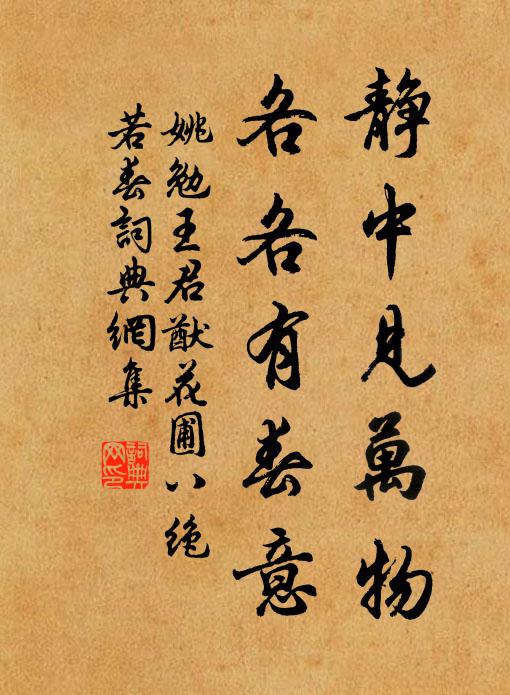 静中見萬物
各各有春意
姚勉王君猷花圃八绝
若春詞典網集
詞典
网印